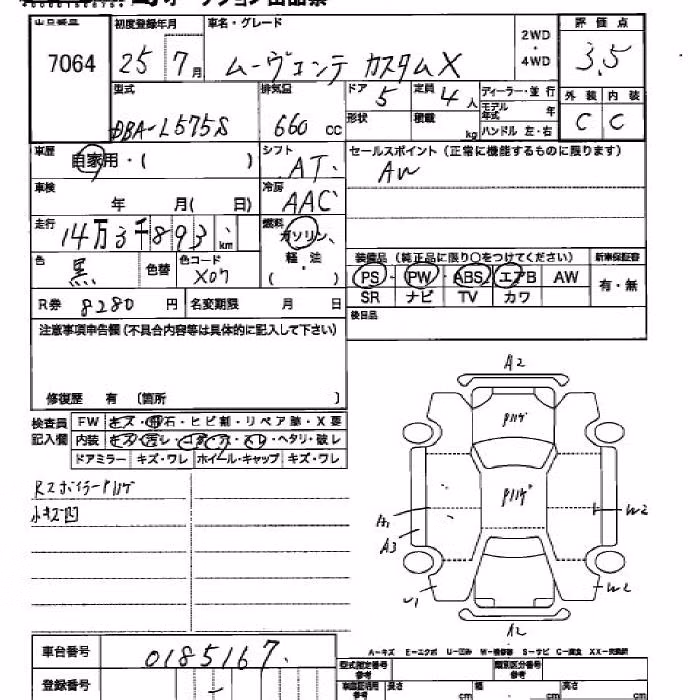 出品番号 初度登録年月 車名・グレード 2WD・4WD 評価点
7064 25 7月 ムーヴコンテ カスタムX 3.5
型式 排気量 ドア 5 定員 4人 ディーラー・並行 外装 内装
DBA-L575S 660cc 形状 積載 kg モデル年式 年 C C
ハンドル 左・右
車歴 自家用・( ) シフト AT セールスポイント(正常に機能するものに限ります)
車検 年 月( 日) 冷房 AAC AW
走行 14万3千893km 燃料 ガソリン、軽油 ( )
色 黒 色替 色コード X07 装備品(純正品に限り○をつけてください) 新車保証書
PS・PW・ABS エアB AW 有・無
R券 8280円 名変期限 月 日 SR ナビ TV カワ
注意事項申告欄(不具合内容等は具体的に記入して下さい) 後日品
修復歴 有 〔箇所 〕
検査員記入欄 FW キズ・飛石・ヒビ割・リペア跡・X要
内装 キズ・汚レ・コゲ・穴・スレ・ヘタリ・破レ
ドアミラー キズ・ワレ ホイール・キャップ キズ・ワレ
A2
Pハゲ
Pハゲ
小キズ凹
A1 W2
A3
U1 W2
A2
A-キズ E-エクボ U-凹み W-補修跡 S-サビ C-腐食 XX-交換済
車台番号 0185167
登録番号
型式指定番号 参考 類別区分番号 参考
長さ cm 幅 cm 高さ cm